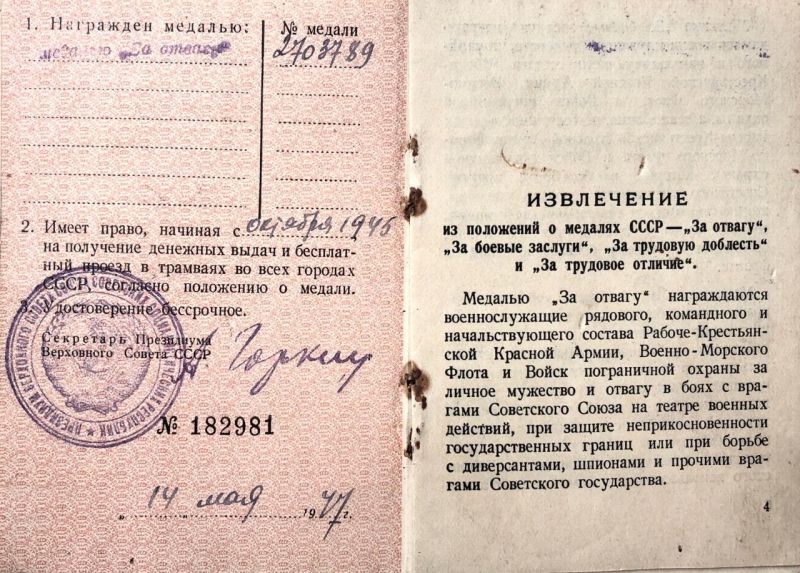 1. Награжден медалью:
медалью „За отвагу“
№ медали
2703789
2. Имеет право, начиная с октября 1945
на получение денежных выдач и бесплат-
ный проезд в трамваях во всех городах
СССР, согласно положению о медали.
3. Удостоверение бессрочное.
Секретарь Президиума
Верховного Совета СССР
А. Горкин
№ 182981
„ 14 мая 1947 г.
ИЗВЛЕЧЕНИЕ
из положений о медалях СССР—„За отвагу“,
„За боевые заслуги“, „За трудовую доблесть“
и „За трудовое отличие“.
Медалью „За отвагу“ награждаются
военнослужащие рядового, командного и
начальствующего состава Рабоче-Крестьян-
ской Красной Армии, Военно-Морского
Флота и Войск пограничной охраны за
личное мужество и отвагу в боях с вра-
гами Советского Союза на театре военных
действий, при защите неприкосновенности
государственных границ или при борьбе
с диверсантами, шпионами и прочими вра-
гами Советского государства.
4